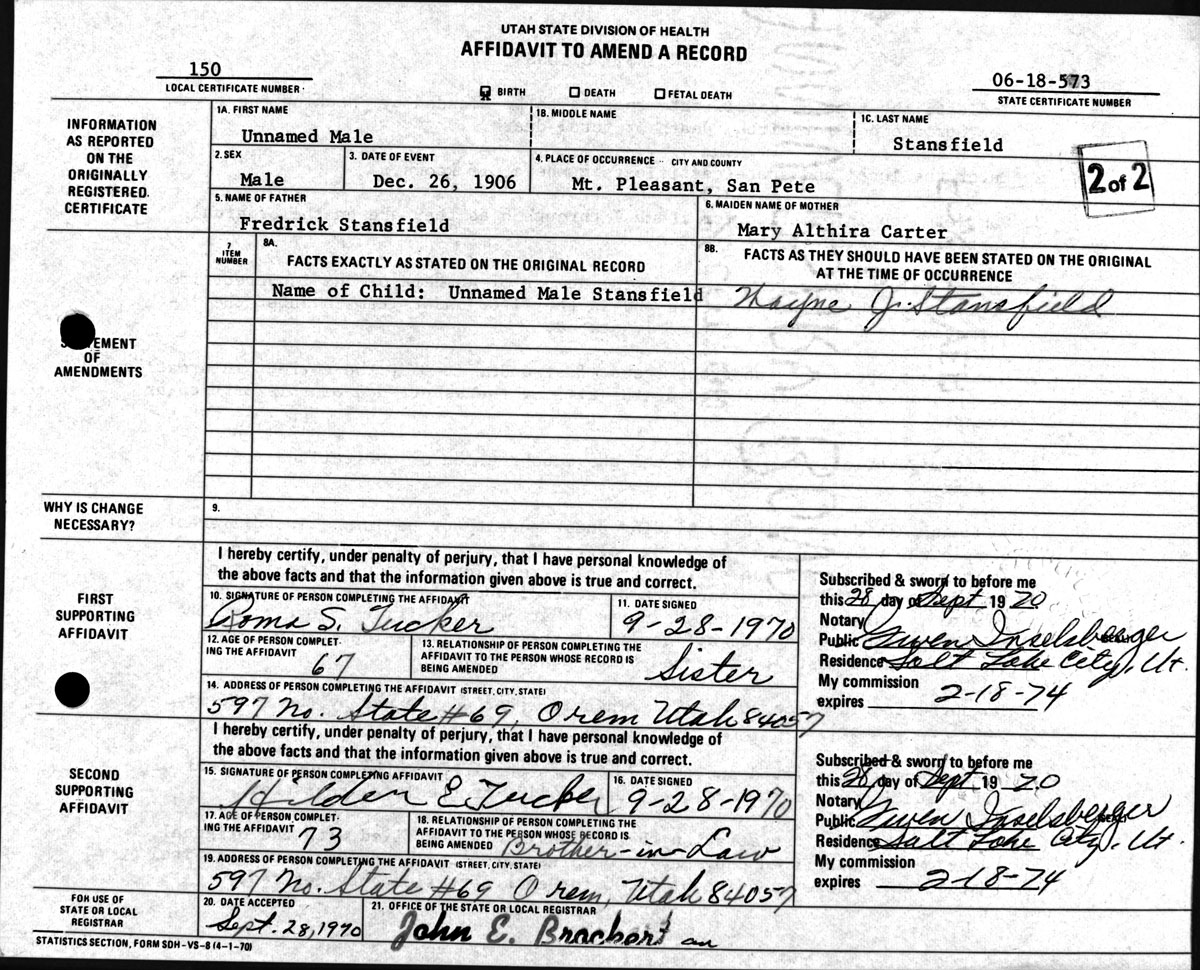 UTAH STATE DIVISION OF HEALTH
AFFIDAVIT TO AMEND A RECORD
150
LOCAL CERTIFICATE NUMBER
BIRTH DEATH FETAL DEATH
06-18-573
STATE CERTIFICATE NUMBER
INFORMATION
AS REPORTED
ON THE
ORIGINALLY
REGISTERED
CERTIFICATE
1A. FIRST NAME 1B. MIDDLE NAME 1C. LAST NAME
Unnamed Male Stansfield
2. SEX 3. DATE OF EVENT 4. PLACE OF OCCURRENCE - CITY AND COUNTY
Male Dec. 26, 1906 Mt. Pleasant, San Pete
2 of 2
5. NAME OF FATHER 6. MAIDEN NAME OF MOTHER
Fredrick Stansfield Mary Althira Carter
STATEMENT
OF
AMENDMENTS
7
ITEM
NUMBER
8A.
FACTS EXACTLY AS STATED ON THE ORIGINAL RECORD
8B. FACTS AS THEY SHOULD HAVE BEEN STATED ON THE ORIGINAL
AT THE TIME OF OCCURRENCE
Name of Child: Unnamed Male Stansfield Wayne J. Stansfield
WHY IS CHANGE
NECESSARY?
9.
FIRST
SUPPORTING
AFFIDAVIT
I hereby certify, under penalty of perjury, that I have personal knowledge of
the above facts and that the information given above is true and correct.
10. SIGNATURE OF PERSON COMPLETING THE AFFIDAVIT 11. DATE SIGNED
Roma S. Tucker 9-28-1970
12. AGE OF PERSON COMPLET-
ING THE AFFIDAVIT 67
13. RELATIONSHIP OF PERSON COMPLETING THE
AFFIDAVIT TO THE PERSON WHOSE RECORD IS
BEING AMENDED Sister
14. ADDRESS OF PERSON COMPLETING THE AFFIDAVIT (STREET, CITY, STATE)
597 No. State #69, Orem Utah 84057
Subscribed & sworn to before me
this 28 day of Sept 1970
Notary
Public Gwen Inselsberger
Residence Salt Lake City, Ut.
My commission
expires 2-18-74
SECOND
SUPPORTING
AFFIDAVIT
I hereby certify, under penalty of perjury, that I have personal knowledge of
the above facts and that the information given above is true and correct.
15. SIGNATURE OF PERSON COMPLETING AFFIDAVIT 16. DATE SIGNED
Hilden E. Tucker 9-28-1970
17. AGE OF PERSON COMPLET-
ING THE AFFIDAVIT 73
18. RELATIONSHIP OF PERSON COMPLETING THE
AFFIDAVIT TO THE PERSON WHOSE RECORD IS
BEING AMENDED Brother-in-Law
19. ADDRESS OF PERSON COMPLETING THE AFFIDAVIT (STREET, CITY, STATE)
597 No. State #69 Orem, Utah 84057
Subscribed & sworn to before me
this 28 day of Sept 1970
Notary
Public Gwen Inselsberger
Residence Salt Lake City, Ut.
My commission
expires 2-18-74
FOR USE OF
STATE OR LOCAL
REGISTRAR
20. DATE ACCEPTED 21. OFFICE OF THE STATE OR LOCAL REGISTRAR
Sept. 28, 1970 John E. Brockert
STATISTICS SECTION, FORM SDH-VS-8 (4-1-70)